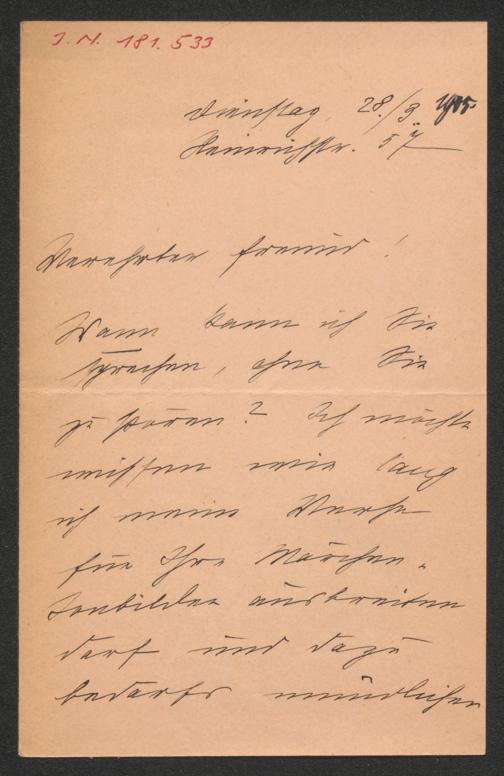 J. N. 181.533
Dienstag, 28./3. 1905.
Heinrichstr. 57
Verehrter Freund!
Wann kann ich Sie
sprechen, ohne Sie
zu stören? Ich möchte
wissen wie lang
ich meine Verse
für Ihre Märchen-
tonbilder ausbreiten
darf und dazu
bedarfs mündlicher